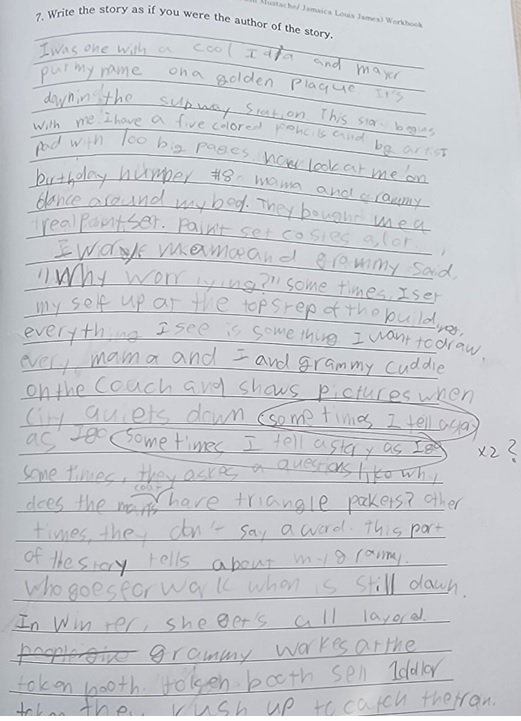 Mustache/ Jamaica Louis James) Workbook
7. Write the story as if you were the author of the story.
I was one with a cool I and mayor
put my name on a golden Plaque It's
down in the subway station This begins
with me. I have a five colored pencils and be artist
pad with 100 big pages now look at me on
birthday number #8. mama and grammy
dance around my bed. They bought me a
real paint set. Paint set costes alot.
I mama and grammy said,
"Why worr ying?" some times, I set
my self up at the top step of the build
everything I see is something I want to draw.
every mama and I and grammy cuddle
on the couch and shows pictures when
city quiets down some times I tell a stay
as I go some times I tell a stay as I go x2?
some times, they askes a questions like why
does the have triangle pokers? Other
times, they don't say a word. This part
of the story tells about my gramy.
who goes for walk when is still dawn.
In Winter, she get's all layerd.
grammy workes at the
token booth. token booth sell 1 dollar
the rush up to catch the tran.